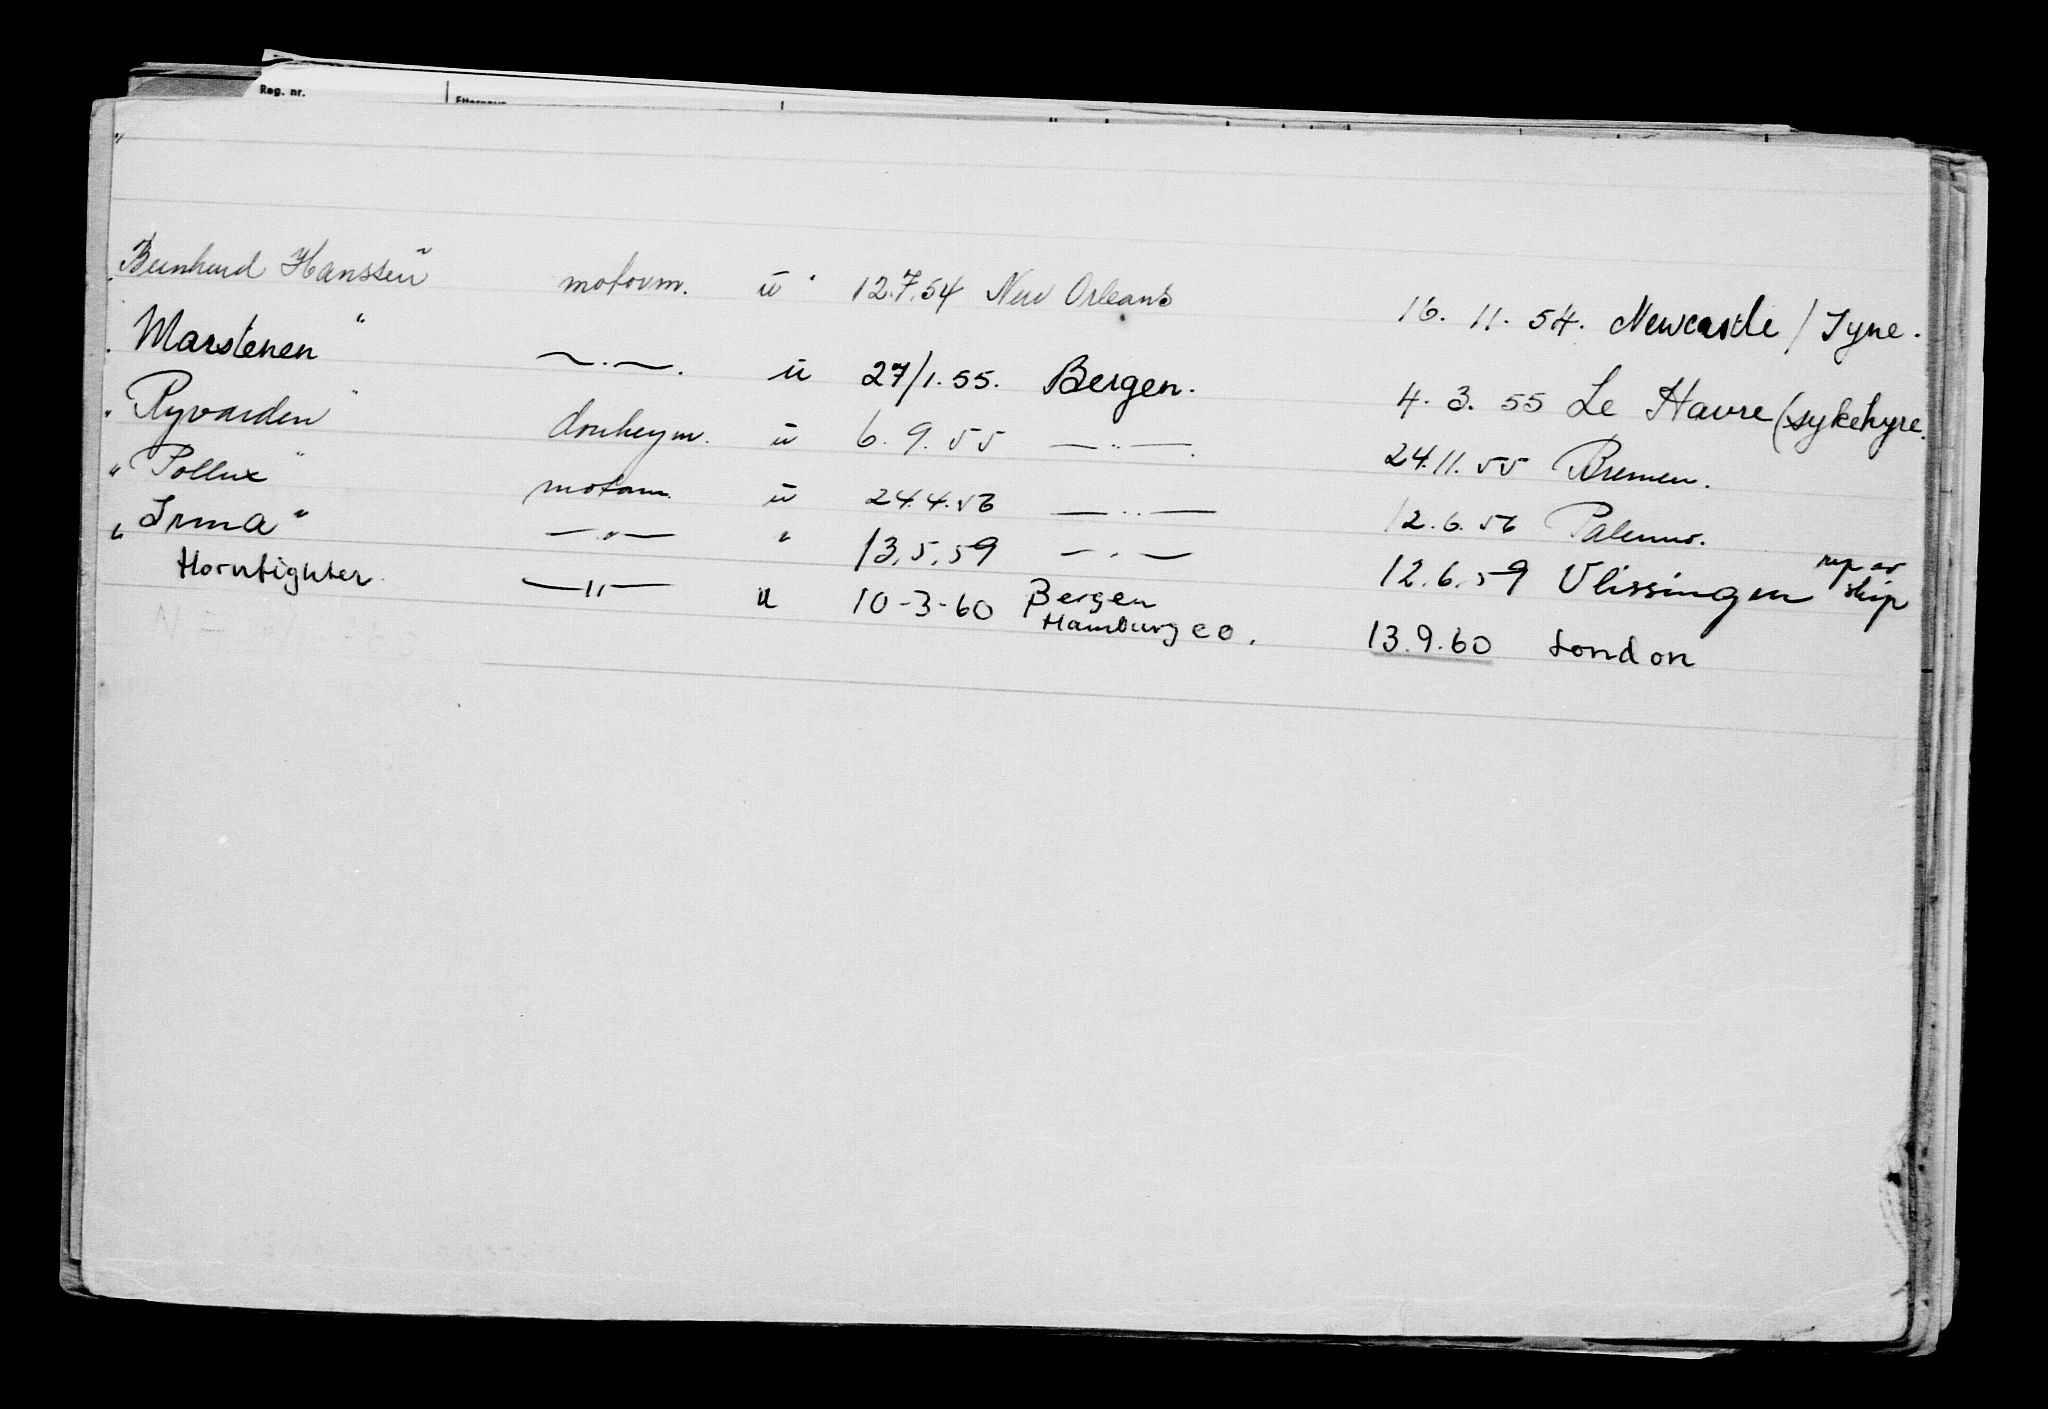 Reg. nr. Etternavn
"Bernhard Hanssen" motorm. u 12.7.54 New Orleans 16. 11. 54. Newcastle / Tyne.
"Marstenen" —.—. u 27/1.55. Bergen. 4. 3. 55 Le Havre (sykehyre.
"Ryvarden" donkeym. u 6. 9. 55 —"—. 24.11.55 Bremen.
"Pollux" motorm. u 24.4.56 —"— 12.6.56 Palermo.
"Irma" —"— " 13.5.59 —"— 12.6.59 Vlissingen rep av skip
Hornfighter —"— u 10-3-60 Bergen Hamburg e o. 13.9.60 London